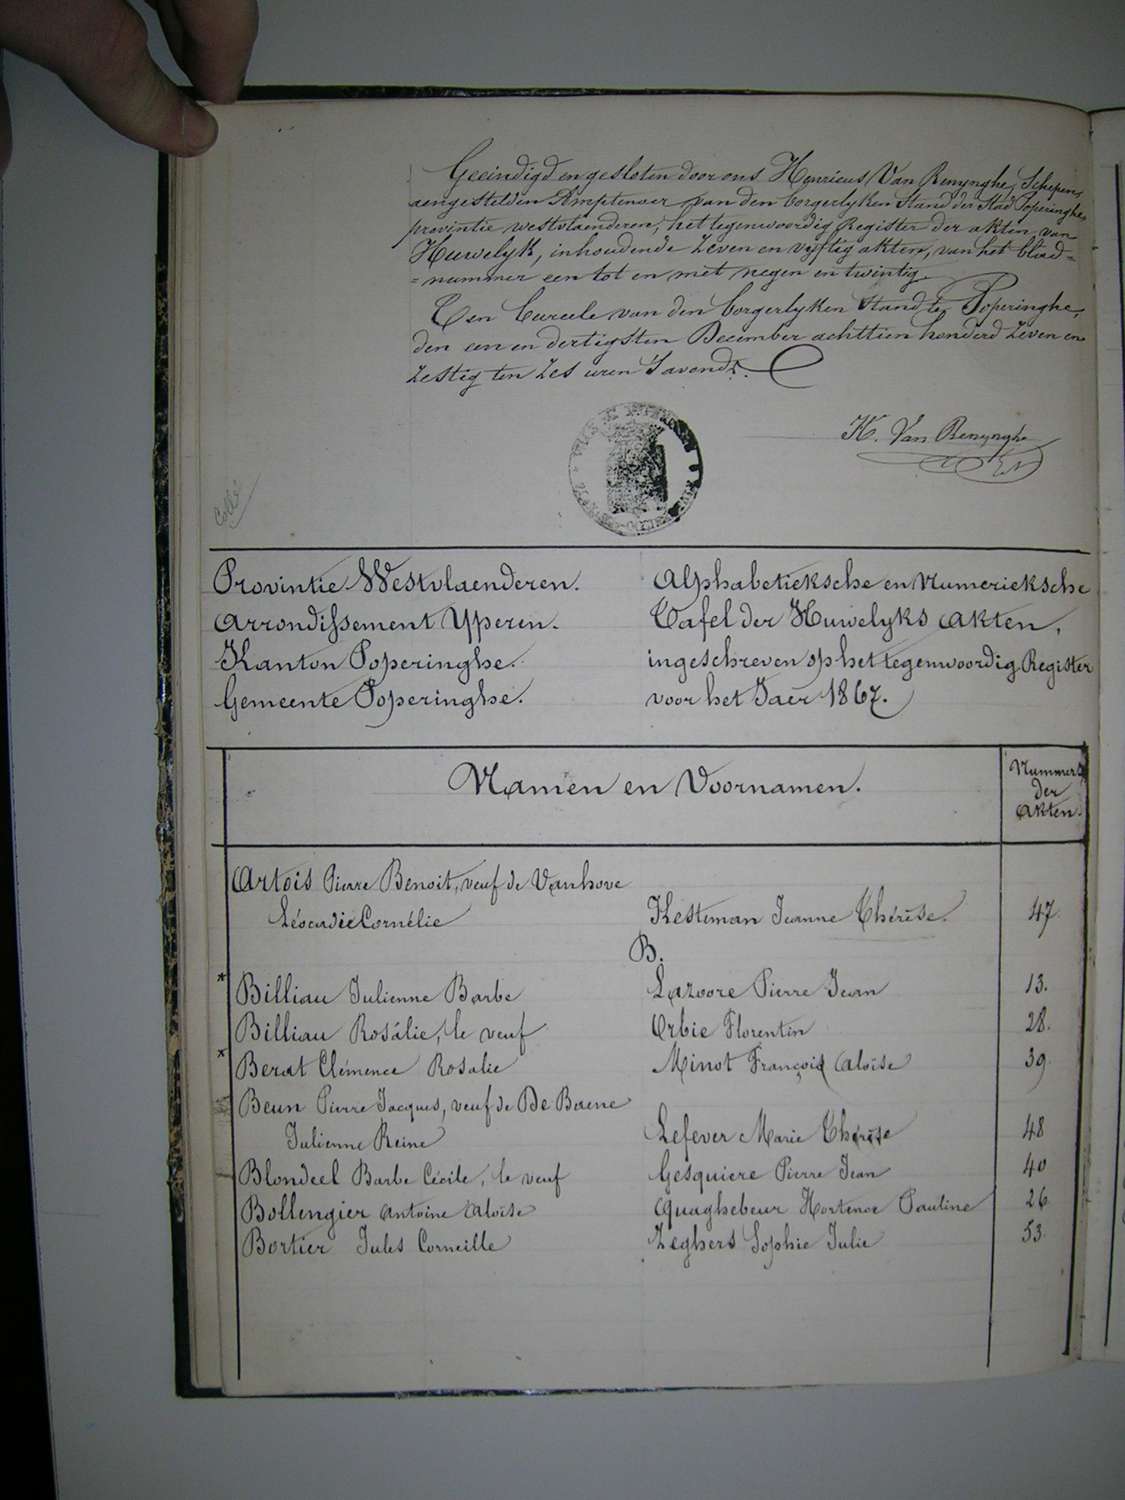 Geeindigd en gesloten door ons Henricus Van Renynghe, Schepen,
aengestelden Amptenaer van den borgerlyken Stand der Stad Poperinghe
provintie westvlaenderen, het tegenwoordig Register der akten van
Huwelyk, inhoudende zeven en vyftig akten, van het blad=
=nummer een tot en met negen en twintig.
Ten bureele van den borgerlyken Stand te Poperinghe,
den een en dertigsten December achttien honderd zeven en
zestig ten zes uren 's avonds.
H. Van Renynghe
Provintie Westvlaenderen.
Arrondissement Yperen.
Kanton Poperinghe.
Gemeente Poperinghe.
Alphabetieksche en Numerieksche
Tafel der Huwelyks Akten,
ingeschreven op het tegenwoordig Register
voor het Jaer 1867.
Namen en Voornamen.
Nummers
der
Akten.
Artois Pierre Benoit, veuf de Vanhove
Léocadie Cornélie Kestiman Jeanne Thérèse. 47.
B.
* Billiau Julienne Barbe Lazoore Pierre Jean 13.
Billiau Rosalie, le veuf Orbie Florentin 28.
* Berat Clémence Rosalie Minot François Aloïse 39
Beun Pierre Jacques, veuf de De Baene
Julienne Reine Lefever Marie Thérèse 48
Blondeel Barbe Cécile, le veuf Gesquiere Pierre Jean 40
Bollengier Antoine Aloïse Quaghebeur Hortence Pauline 26
Bortier Jules Corneille Zeghers Sophie Julie 53.